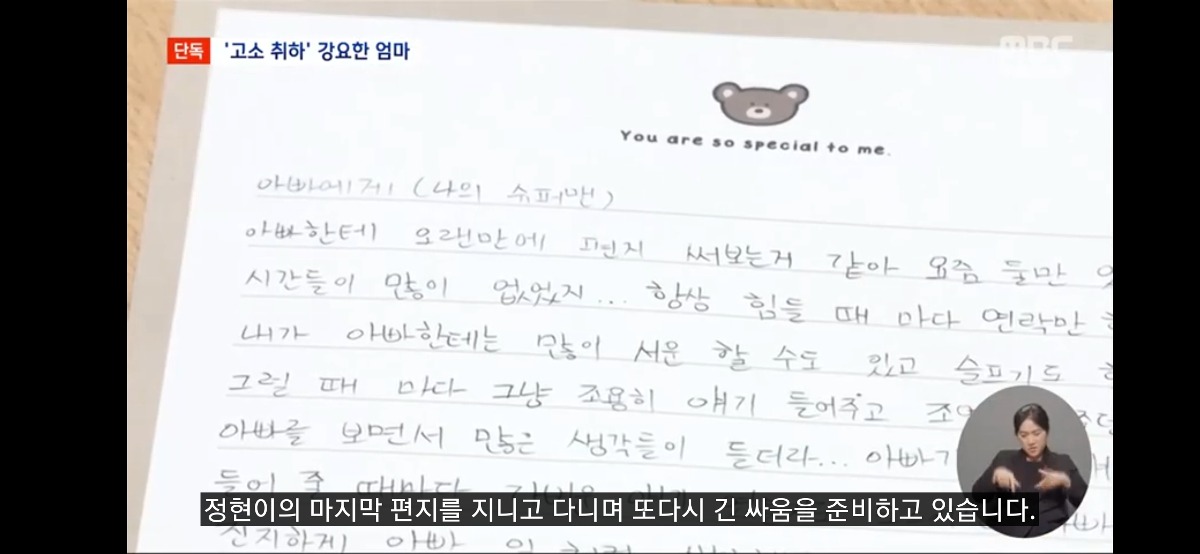 단독 '고소 취하' 강요한 엄마
MBC
You are so special to me.
아빠에게 (나의 슈퍼맨)
아빠한테 오랜만에 편지 써보는거 같아 요즘 둘만
시간들이 많이 없었지... 항상 힘들 때 마다 연락만
내가 아빠한테는 많이 서운 할 수도 있고 슬프기도
그럴 때 마다 그냥 조용히 얘기 들어주고
아빠를 보면서 많은 생각들이 들더라... 아빠가
들어 줄 때마다
정현이의 마지막 편지를 지니고 다니며 또다시 긴 싸움을 준비하고 있습니다.
진지하게 아빠